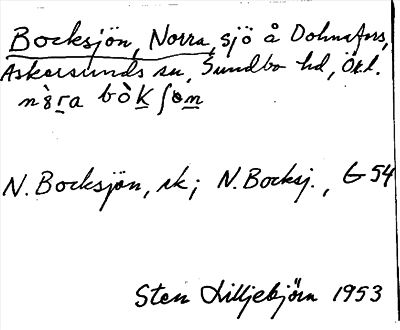 Bocksjön, Norra, sjö å Dohnafors,
Askersunds sn, Sundbo hd, Örl.
N. Bocksjön, rk; N. Bocksj., G 54
Sten Lilljebjörn 1953